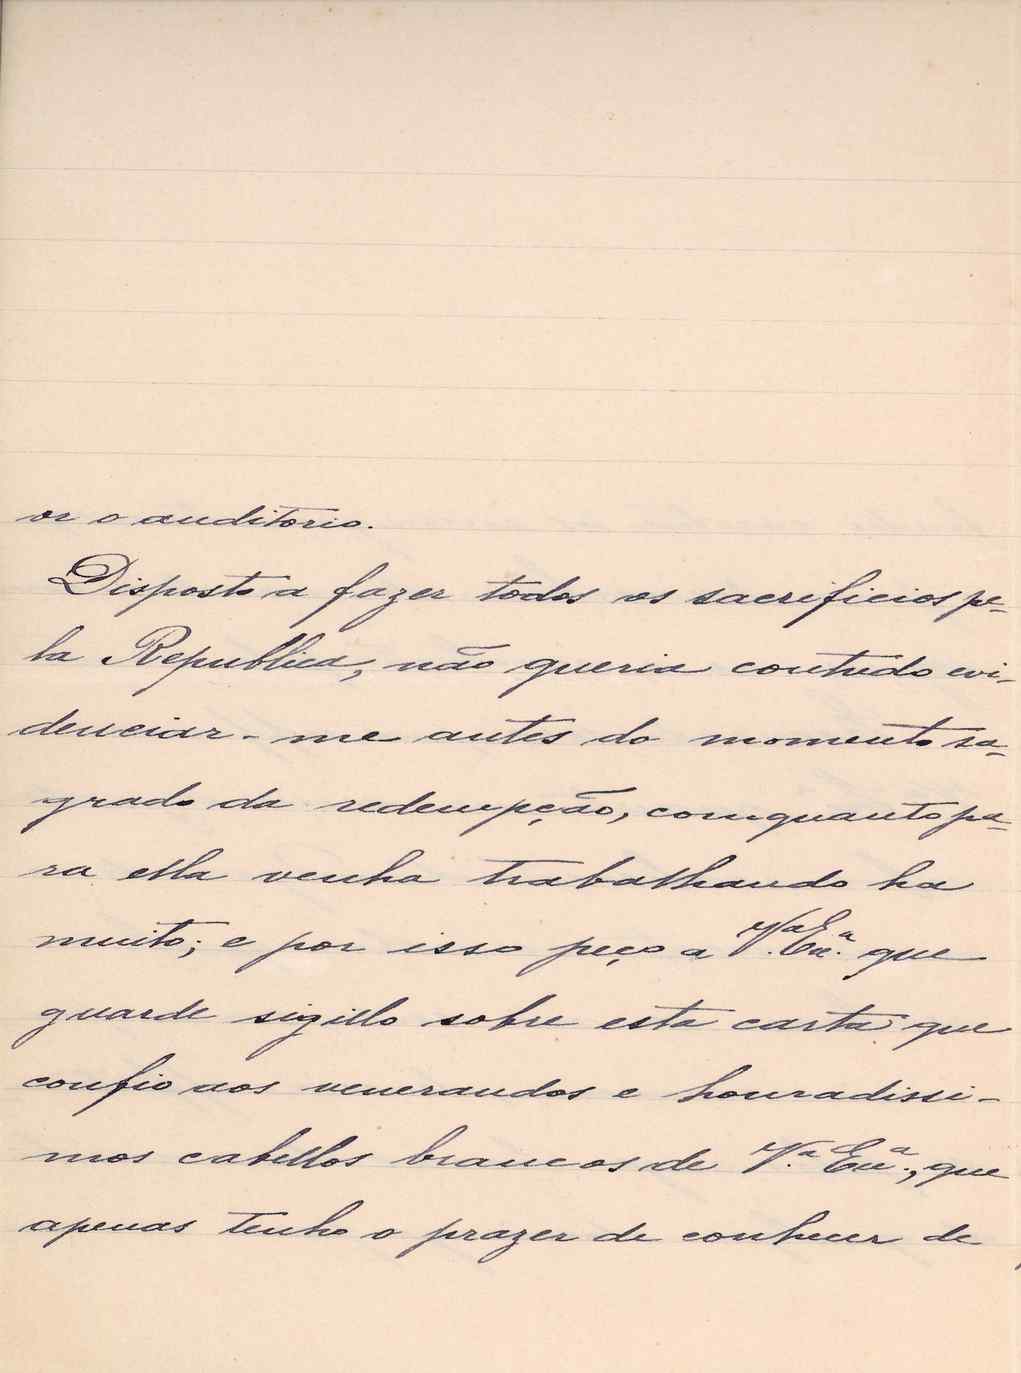 or o auditorio.
Disposto a fazer todos os sacrificios pe-
la Republica, não queria comtudo evi-
denciar-me antes do momento sa-
grado da redempção, comquanto pa-
ra ella venha trabalhando ha
muito; e por isso peço a V.ª Ex.ª que
guarde sigillo sobre esta carta que
confio aos venerandos e honradissi-
mos cabellos brancos de V.ª Ex.ª, que
apenas tenho o prazer de conhecer de